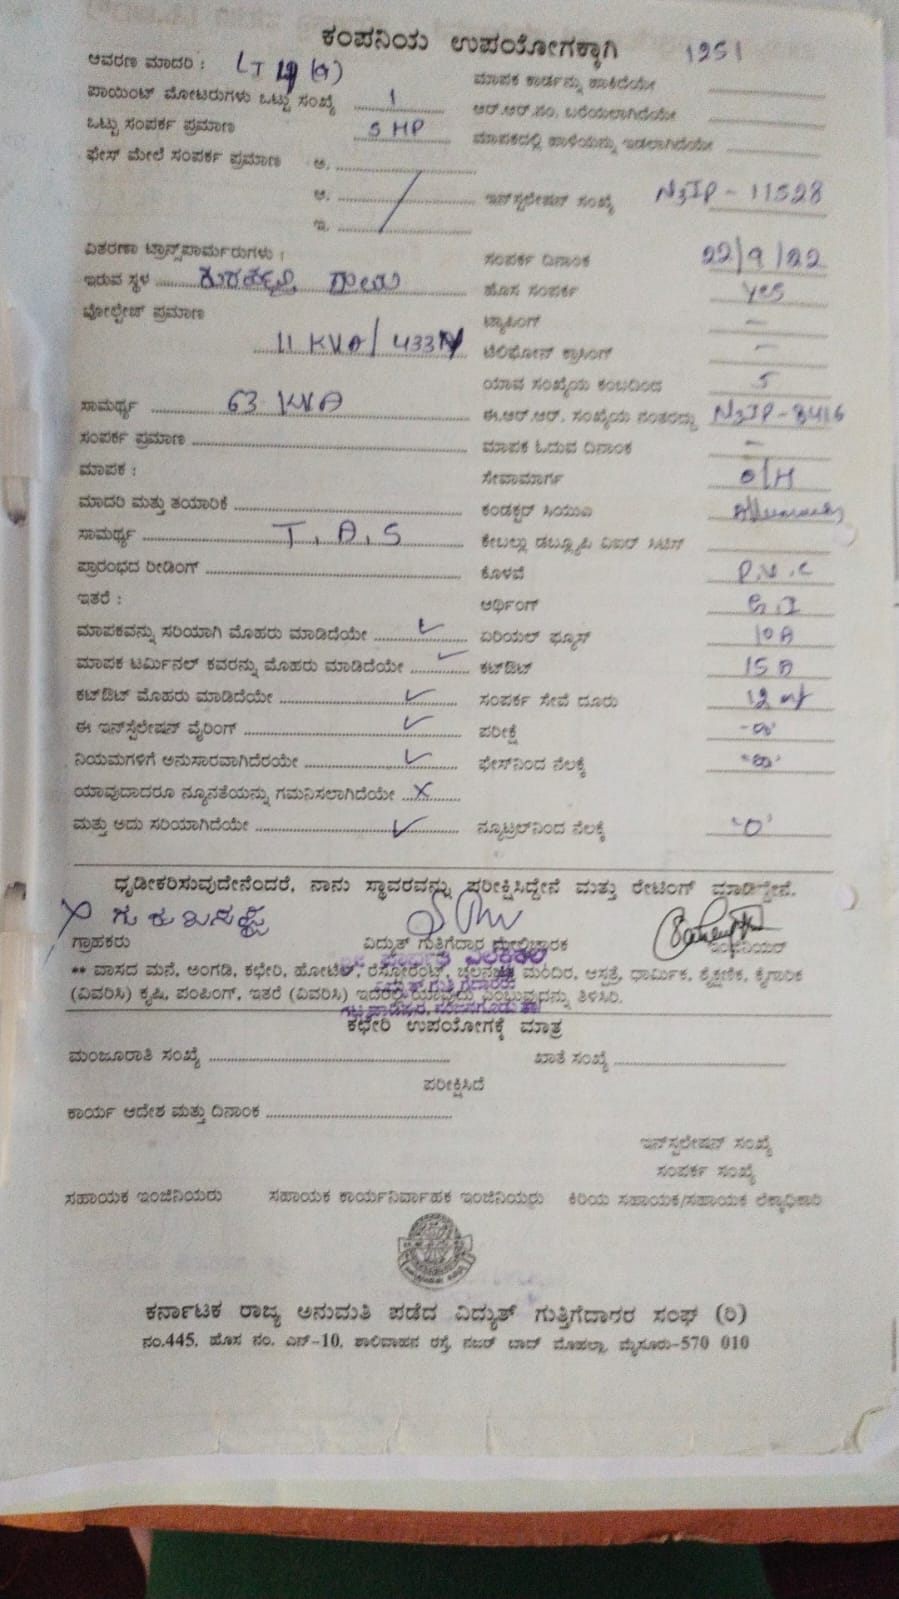 ಕಂಪನಿಯ ಉಪಯೋಗಕ್ಕಾಗಿ 1251
ಆವರಣ ಮಾದರಿ : LT 4 (a) ಮಾಪಕ ಕಾರ್ಡನ್ನು ಹಾಕಿದೆಯೇ
ಪಾಯಿಂಟ್ ಮೋಟರುಗಳು ಒಟ್ಟು ಸಂಖ್ಯೆ 1 ಆರ್.ಆರ್.ನಂ. ಬರೆಯಲಾಗಿದೆಯೇ
ಒಟ್ಟು ಸಂಪರ್ಕ ಪ್ರಮಾಣ 5 HP ಮಾಪಕದಲ್ಲಿ ಹಾಳೆಯನ್ನು ಇಡಲಾಗಿದೆಯೇ
ಫೇಸ್ ಮೇಲೆ ಸಂಪರ್ಕ ಪ್ರಮಾಣ ಅ.
ಆ. ಇನ್‌ಸ್ಟಲೇಷನ್ ಸಂಖ್ಯೆ N3IP - 11528
ಇ.
ವಿತರಣಾ ಟ್ರಾನ್ಸ್‌ಫಾರ್ಮರುಗಳು : ಸಂಪರ್ಕ ದಿನಾಂಕ 22/9/22
ಇರುವ ಸ್ಥಳ ಹೊಸ ಸಂಪರ್ಕ Yes
ವೋಲ್ಟೇಜ್ ಪ್ರಮಾಣ ಟ್ಯಾಪಿಂಗ್ –
11 KVA / 433 V ಟೆಲಿಫೋನ್ ಕ್ರಾಸಿಂಗ್ –
ಯಾವ ಸಂಖ್ಯೆಯ ಕಂಬದಿಂದ 5
ಸಾಮರ್ಥ್ಯ 63 KVA ಈ.ಆರ್.ಆರ್. ಸಂಖ್ಯೆಯ ನಂತರದ್ದು N3IP-8416
ಸಂಪರ್ಕ ಪ್ರಮಾಣ ಮಾಪಕ ಓದುವ ದಿನಾಂಕ –
ಮಾಪಕ : ಸೇವಾಮಾರ್ಗ O/H
ಮಾದರಿ ಮತ್ತು ತಯಾರಿಕೆ ಕಂಡಕ್ಟರ್ ಸಿಯುಎ
ಸಾಮರ್ಥ್ಯ T.A.S ಕೇಬಲ್ಲು ಡಬ್ಲ್ಯೂಪಿ ವಿಐಆರ್
ಪ್ರಾರಂಭದ ರೀಡಿಂಗ್ ಕೊಳವೆ P.V.C
ಇತರೆ : ಅರ್ಥಿಂಗ್ G.I
ಮಾಪಕವನ್ನು ಸರಿಯಾಗಿ ಮೊಹರು ಮಾಡಿದೆಯೇ ✓ ಏರಿಯಲ್ ಫ್ಯೂಸ್ 10 A
ಮಾಪಕ ಟರ್ಮಿನಲ್ ಕವರನ್ನು ಮೊಹರು ಮಾಡಿದೆಯೇ ✓ ಕಟ್‌ಔಟ್ 15 A
ಕಟ್‌ಔಟ್ ಮೊಹರು ಮಾಡಿದೆಯೇ ✓ ಸಂಪರ್ಕ ಸೇವೆ ದೂರು 12 mt
ಈ ಇನ್‌ಸ್ಟಲೇಷನ್ ವೈರಿಂಗ್ ✓ ಪರೀಕ್ಷೆ
ನಿಯಮಗಳಿಗೆ ಅನುಸಾರವಾಗಿದೆರಯೇ ✓ ಫೇಸ್‌ನಿಂದ ನೆಲಕ್ಕೆ
ಯಾವುದಾದರೂ ನ್ಯೂನತೆಯನ್ನು ಗಮನಿಸಲಾಗಿದೆಯೇ X
ಮತ್ತು ಅದು ಸರಿಯಾಗಿದೆಯೇ ✓ ನ್ಯೂಟ್ರಲ್‌ನಿಂದ ನೆಲಕ್ಕೆ "0"
ಧೃಡೀಕರಿಸುವುದೇನೆಂದರೆ, ನಾನು ಸ್ಥಾವರವನ್ನು ಪರೀಕ್ಷಿಸಿದ್ದೇನೆ ಮತ್ತು ರೇಟಿಂಗ್ ಮಾಡಿದ್ದೇನೆ.
ಗ್ರಾಹಕರು ವಿದ್ಯುತ್ ಗುತ್ತಿಗೆದಾರ ಮೇಲ್ವಿಚಾರಕ ಇಂಜಿನಿಯರ್
** ವಾಸದ ಮನೆ, ಅಂಗಡಿ, ಕಛೇರಿ, ಹೋಟೆಲ್, ರೆಸ್ಟೋರೆಂಟ್, ಚಲನಚಿತ್ರ ಮಂದಿರ, ಆಸ್ಪತ್ರೆ, ಧಾರ್ಮಿಕ, ಶೈಕ್ಷಣಿಕ, ಕೈಗಾರಿಕ
(ವಿವರಿಸಿ) ಕೃಷಿ, ಪಂಪಿಂಗ್, ಇತರೆ (ವಿವರಿಸಿ) ಇದರಲ್ಲಿ ಯಾವುದು ಎಂಬುವುದನ್ನು ತಿಳಿಸಿರಿ.
ಕಛೇರಿ ಉಪಯೋಗಕ್ಕೆ ಮಾತ್ರ
ಮಂಜೂರಾತಿ ಸಂಖ್ಯೆ ಖಾತೆ ಸಂಖ್ಯೆ
ಪರೀಕ್ಷಿಸಿದೆ
ಕಾರ್ಯ ಆದೇಶ ಮತ್ತು ದಿನಾಂಕ
ಇನ್‌ಸ್ಟಲೇಷನ್ ಸಂಖ್ಯೆ
ಸಂಪರ್ಕ ಸಂಖ್ಯೆ
ಸಹಾಯಕ ಇಂಜಿನಿಯರು ಸಹಾಯಕ ಕಾರ್ಯನಿರ್ವಾಹಕ ಇಂಜಿನಿಯರು ಕಿರಿಯ ಸಹಾಯಕ/ಸಹಾಯಕ ಲೆಕ್ಕಾಧಿಕಾರಿ
ಕರ್ನಾಟಕ ರಾಜ್ಯ ಅನುಮತಿ ಪಡೆದ ವಿದ್ಯುತ್ ಗುತ್ತಿಗೆದಾರರ ಸಂಘ (ರಿ)
ನಂ.445, ಹೊಸ ನಂ. ಎನ್-10, ಶಾಲಿವಾಹನ ರಸ್ತೆ, ನಜರ್ ಬಾದ್ ಮೊಹಲ್ಲಾ, ಮೈಸೂರು-570 010